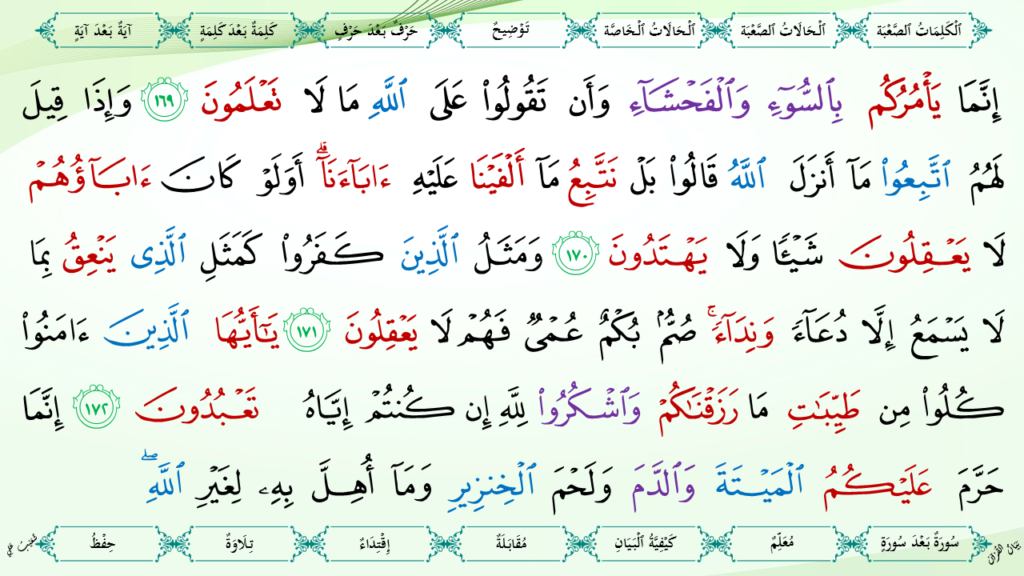 اَلْكَلِمَاتُ الصَّعْبَة اَلْحَالَاتُ الصَّعْبَة اَلْحَالَاتُ الْخَاصَّة تَوْضِيحٌ حَرْفٌ بَعْدَ حَرْفٍ كَلِمَةٌ بَعْدَ كَلِمَةٍ آيَةٌ بَعْدَ آيَةٍ
إِنَّمَا يَأْمُرُكُم بِٱلسُّوٓءِ وَٱلْفَحْشَآءِ وَأَن تَقُولُوا۟ عَلَى ٱللَّهِ مَا لَا تَعْلَمُونَ ١٦٩ وَإِذَا قِيلَ
لَهُمُ ٱتَّبِعُوا۟ مَآ أَنزَلَ ٱللَّهُ قَالُوا۟ بَلْ نَتَّبِعُ مَآ أَلْفَيْنَا عَلَيْهِ ءَابَآءَنَآ ۗ أَوَلَوْ كَانَ ءَابَآؤُهُمْ
لَا يَعْقِلُونَ شَيْـًٔا وَلَا يَهْتَدُونَ ١٧٠ وَمَثَلُ ٱلَّذِينَ كَفَرُوا۟ كَمَثَلِ ٱلَّذِى يَنْعِقُ بِمَا
لَا يَسْمَعُ إِلَّا دُعَآءً وَنِدَآءً ۚ صُمٌّۢ بُكْمٌ عُمْىٌ فَهُمْ لَا يَعْقِلُونَ ١٧١ يَـٰٓأَيُّهَا ٱلَّذِينَ ءَامَنُوا۟
كُلُوا۟ مِن طَيِّبَـٰتِ مَا رَزَقْنَـٰكُمْ وَٱشْكُرُوا۟ لِلَّهِ إِن كُنتُمْ إِيَّاهُ تَعْبُدُونَ ١٧٢ إِنَّمَا
حَرَّمَ عَلَيْكُمُ ٱلْمَيْتَةَ وَٱلدَّمَ وَلَحْمَ ٱلْخِنزِيرِ وَمَآ أُهِلَّ بِهِۦ لِغَيْرِ ٱللَّهِ ۖ
سُورَةٌ بَعْدَ سُورَةٍ مُعَلِّمٌ كَيْفِيَّةُ الْبَيَانِ مُقَابَلَةٌ إِقْتِدَاءٌ تِلَاوَةٌ حِفْظٌ